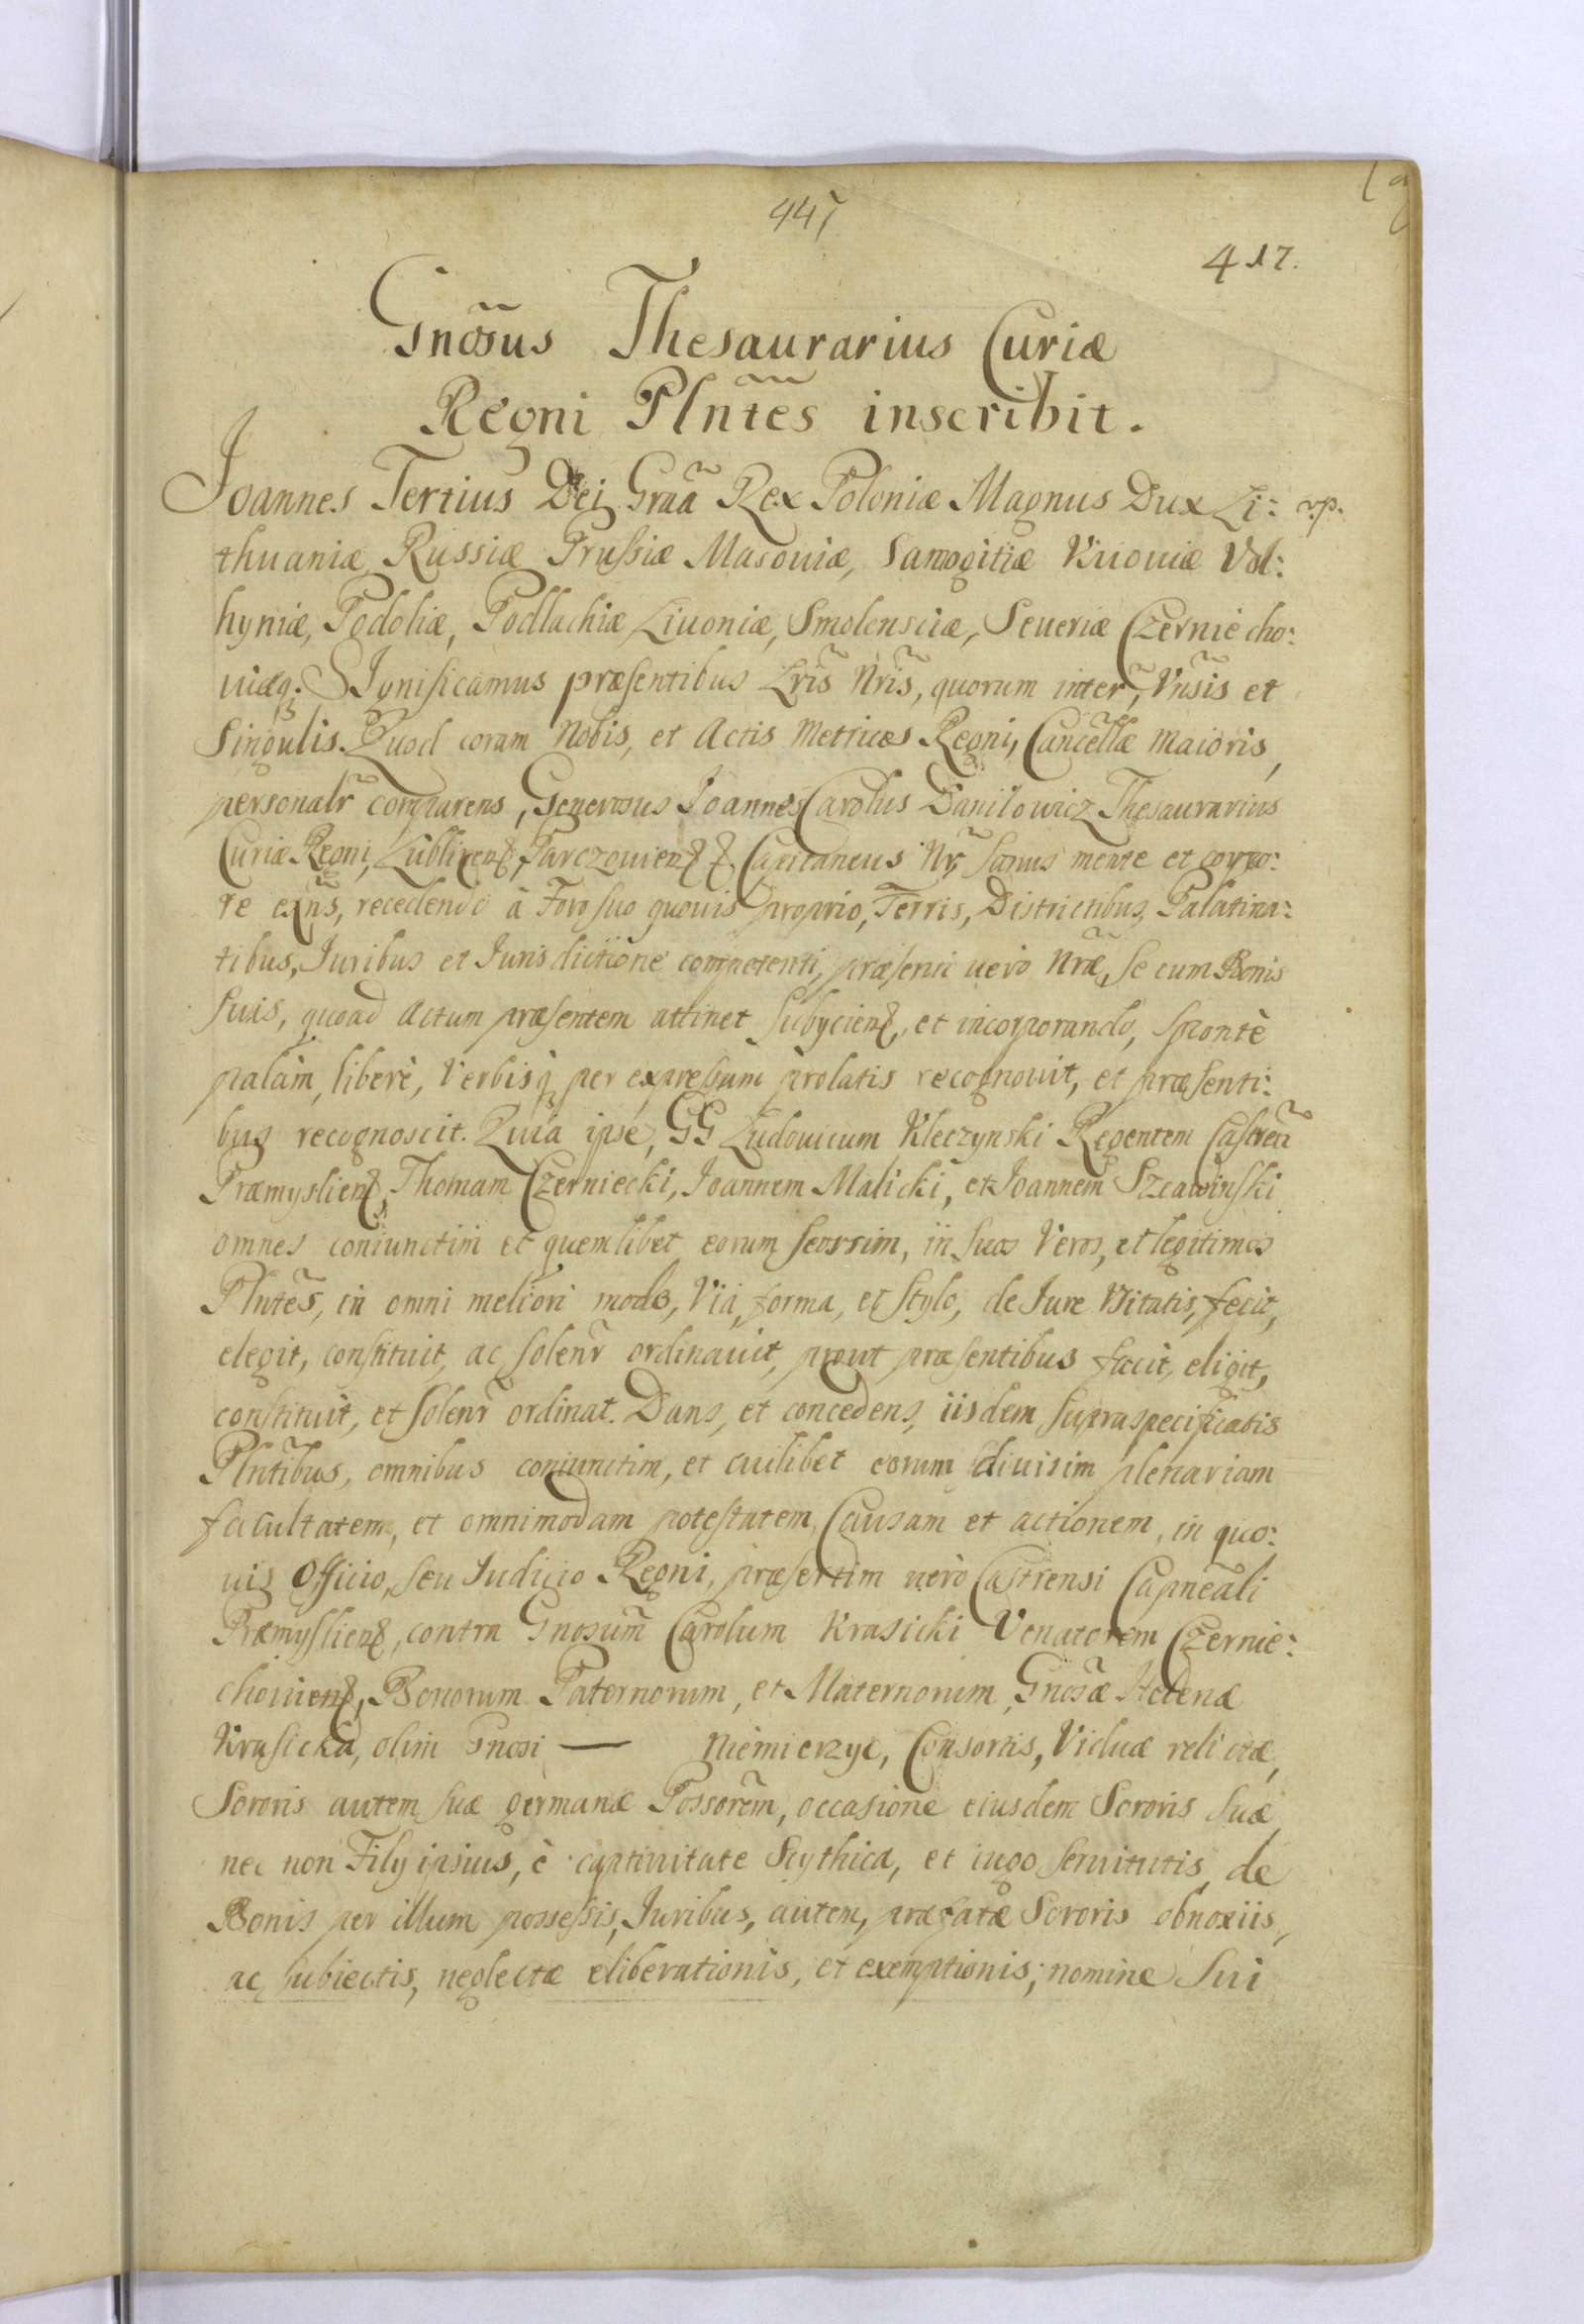 447
417.
Gnõsus Thesaurarius Curiæ
Regni Plntẽs inscribit.
Joannes Tertius Dei Graã Rex Poloniæ Magnus Dux Li: v.p.
thuaniæ Russiæ Prussiæ Masouiæ, Samogitiæ Kiiouiæ Vol:
hyniæ, Podoliæ, Podlachiæ Liuoniæ, Smolensciæ, Seueriæ Czerniecho:
uiæq. SIgnificamus præsentibus Lris̃ Nris̃, quorum inter̃, Vnis̃is et
Singulis. Quod coram Nobis, et Actis Metrices Regni, Cancellæ Maioris,
personalr̃ comparens, Generosus Joannes Carolus Danilowicz Thesaurarius
Curiæ Regni, Lublinen, Parczouien Capitaneus Nr̃, Sanus mente et corpo:
re exñs, recedendo à Foro suo quouis proprio, Terris, Districtibus, Palatina:
tibus, Juribus et Jurisdictione competenti, præsenti uero Nræ̃, Se cum Bonis
Suis, quoad Actum præsentem attinet Subyciens, et incorporando, Spontè
palàm, liberè, Verbisq per expressum prolatis recognouit, et præsenti:
bus recognoscit. Quia ipse, GG Ludouicum Kleczynski Regentem Castreñ
Præmyslien, Thomam Czerniecki, Joannem Malicki, et Joannem Szcawinski
omnes coniunctim et quemlibet eorum Seorsim, in Suos Veros, et legitimos
Plntẽs, in omni meliori modo, Via, forma, et Stylo, de Jure Vsitatis, fecit,
elegit, constituit, ac Solenr̃ ordinauit, prout præsentibus facit, eligit,
constituit, et Solenr̃ ordinat. Dans, et concedens, iisdem Supraspecificatis
Plntĩbus, omnibus coniunctim, et cuilibet eorum diuisim plenariam
facultatem, et omnimodam potestatem, Causam et actionem, in quo:
uis Officio, Seu Judicio Regni, præsertim uerò Castrensi Capneãli
Præmyslien, contra Gnosum̃ Carolum Krasicki Venatorem Czernie:
chouien, Bonorum Paternorum, et Maternorum, Gnosæ̃ Helenæ
Krasicka, olim Gnosi — Niemierzyc, Consortis, Viduæ relictæ,
Sororis autem Suæ germanæ Possorẽm, occasione eiusdem Sororis Suæ,
nec non Filij ipsius, è captiuitate Scythica, et iugo Seruitutis, de
Bonis per illum possessis, Juribus, autem, præfatæ Sororis obnoxiis,
ac subiectis, neglectæ eliberationis, et exemptionis; nomine Sui